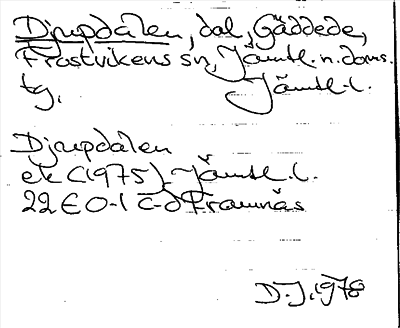 Djupdalen, dal, Gäddede,
Frostvikens sn, Jämtl. n. doms.
tg, Jämtl. l.
Djupdalen
ek (1975) Jämtl. l.
22E 0-1 c-d Framnäs
D.J. 1978